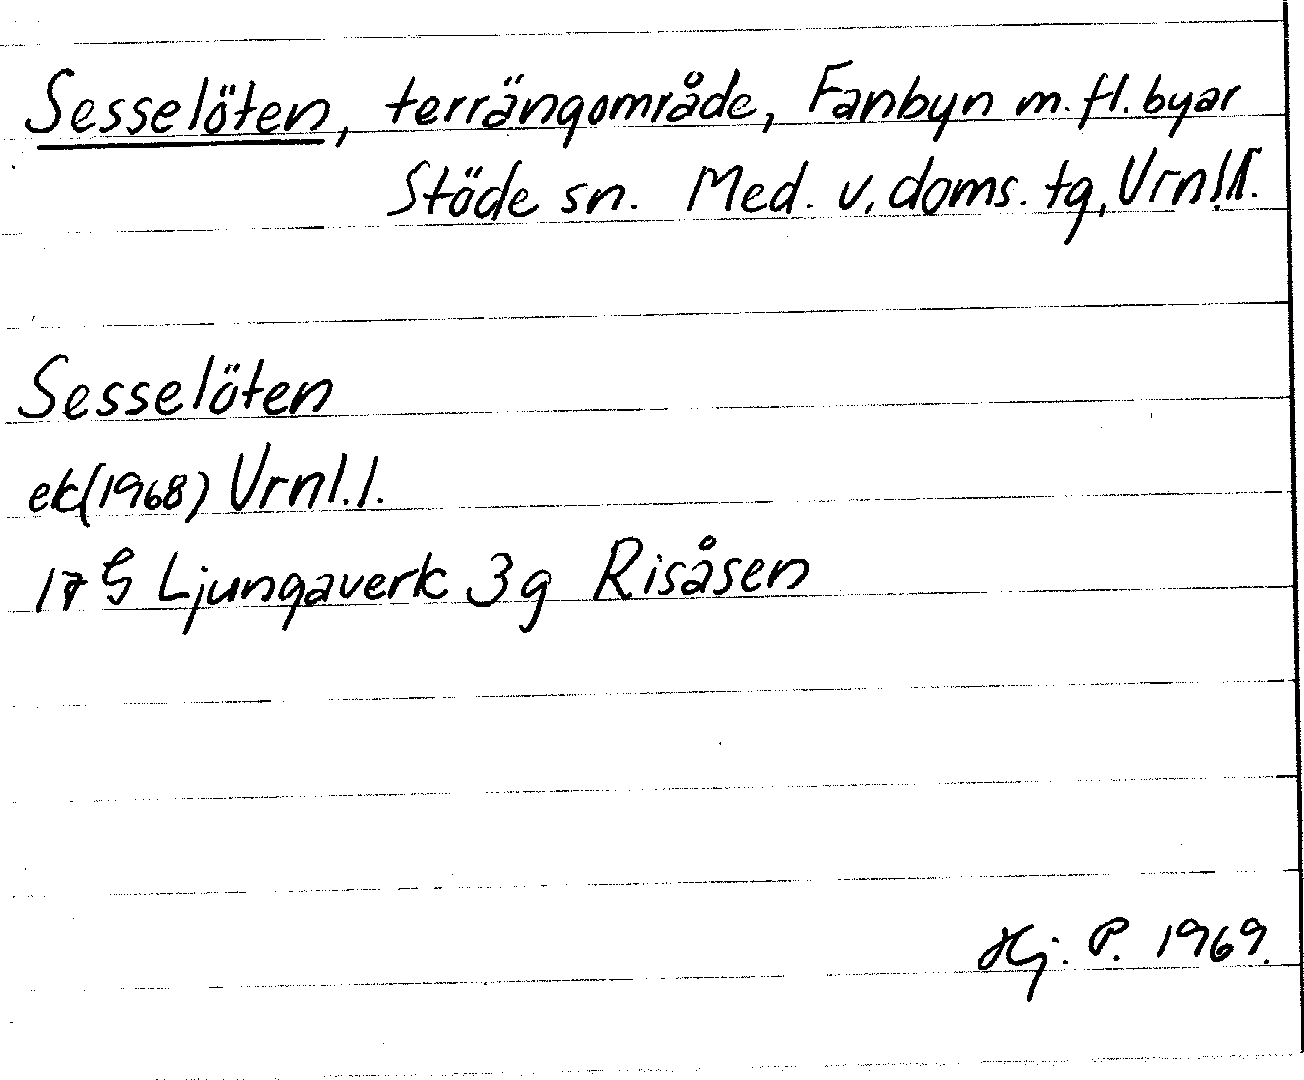 Sesselöten, terrängområde, Fanbyn m. fl. byar
Stöde sn. Med. v. doms. tg, Vrnl.l.
Sesselöten
ek(1968) Vrnl.l.
17 G Ljungaverk 3g Risåsen
Hj. P. 1969.